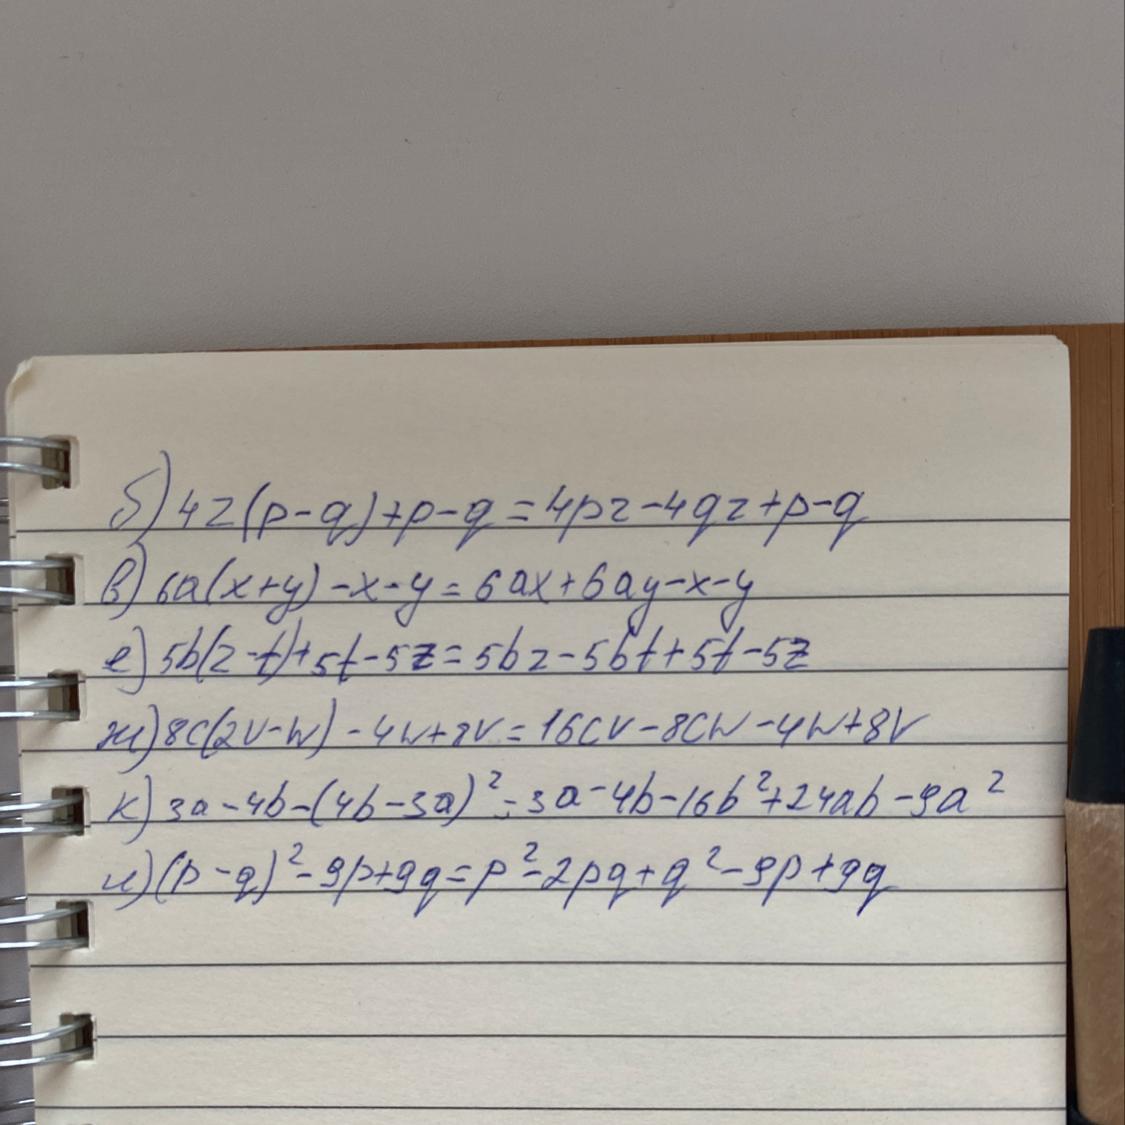 б) 4z(p-q)+p-q=4pz-4qz+p-q
в) 6a(x+y)-x-y=6ax+6ay-x-y
е) 5b(z-t)+5t-5z=5bz-5bt+5t-5z
ж) 8c(2v-w)-4w+8v=16cv-8cw-4w+8v
к) 3a-4b-(4b-3a)²=3a-4b-16b²+24ab-9a²
и) (p-q)²-9p+9q=p²-2pq+q²-9p+9q